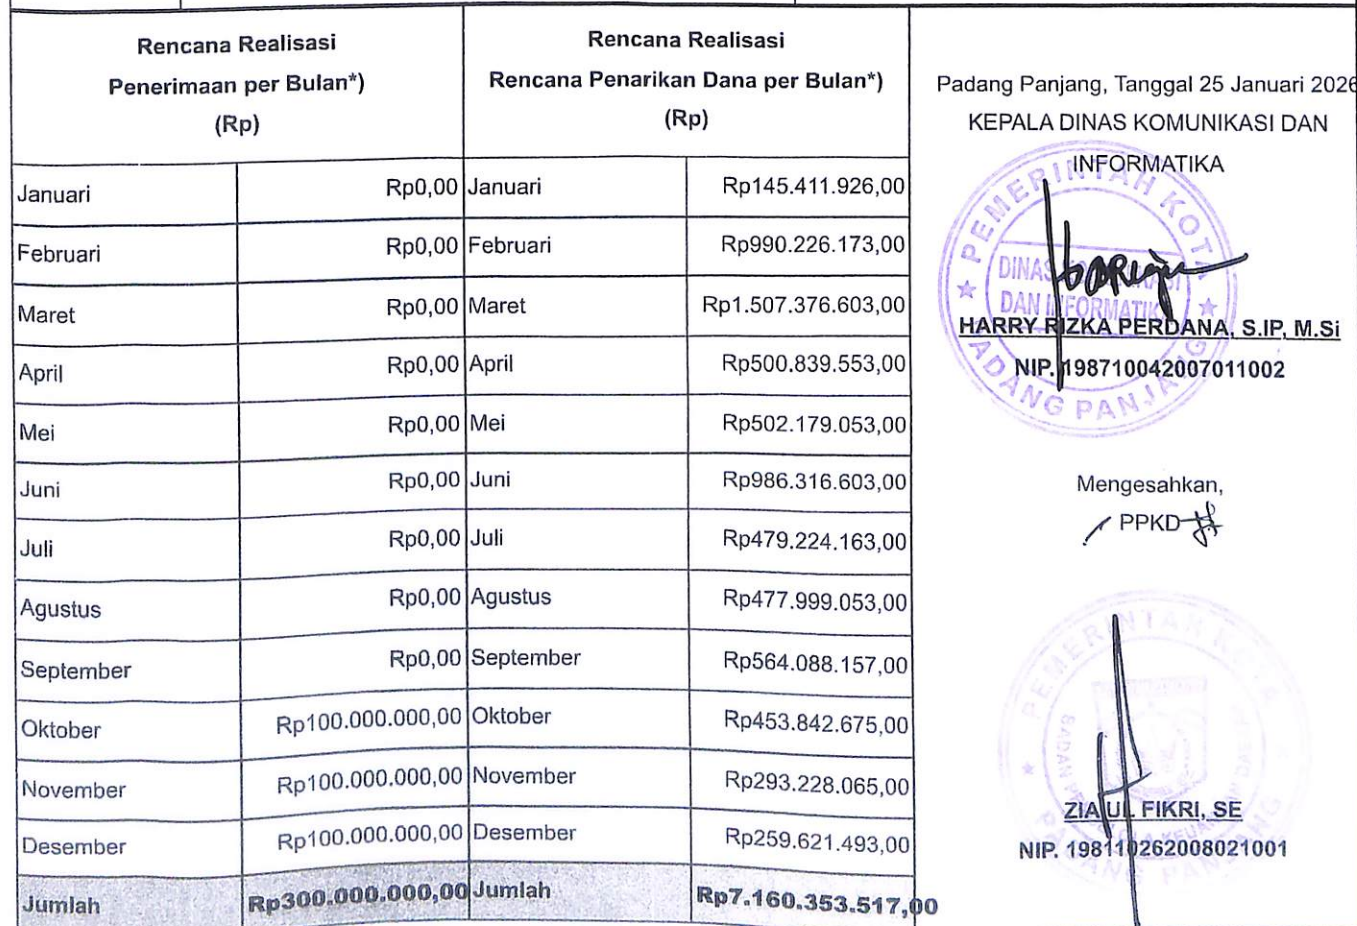 Rencana Realisasi
Penerimaan per Bulan*)
(Rp)
Rencana Realisasi
Rencana Penarikan Dana per Bulan*)
(Rp)
Januari Rp0,00 Januari Rp145.411.926,00
Februari Rp0,00 Februari Rp990.226.173,00
Maret Rp0,00 Maret Rp1.507.376.603,00
April Rp0,00 April Rp500.839.553,00
Mei Rp0,00 Mei Rp502.179.053,00
Juni Rp0,00 Juni Rp986.316.603,00
Juli Rp0,00 Juli Rp479.224.163,00
Agustus Rp0,00 Agustus Rp477.999.053,00
September Rp0,00 September Rp564.088.157,00
Oktober Rp100.000.000,00 Oktober Rp453.842.675,00
November Rp100.000.000,00 November Rp293.228.065,00
Desember Rp100.000.000,00 Desember Rp259.621.493,00
Jumlah Rp300.000.000,00 Jumlah Rp7.160.353.517,00
Padang Panjang, Tanggal 25 Januari 2026
KEPALA DINAS KOMUNIKASI DAN
INFORMATIKA
PEMERINTAH KOTA
DINAS KOMUNIKASI
DAN INFORMATIKA
PADANG PANJANG
HARRY RIZKA PERDANA, S.IP, M.Si
NIP. 198710042007011002
Mengesahkan,
PPKD
PEMERINTAH KOTA
PADANG PANJANG
ZIAUL FIKRI, SE
NIP. 198110262008021001